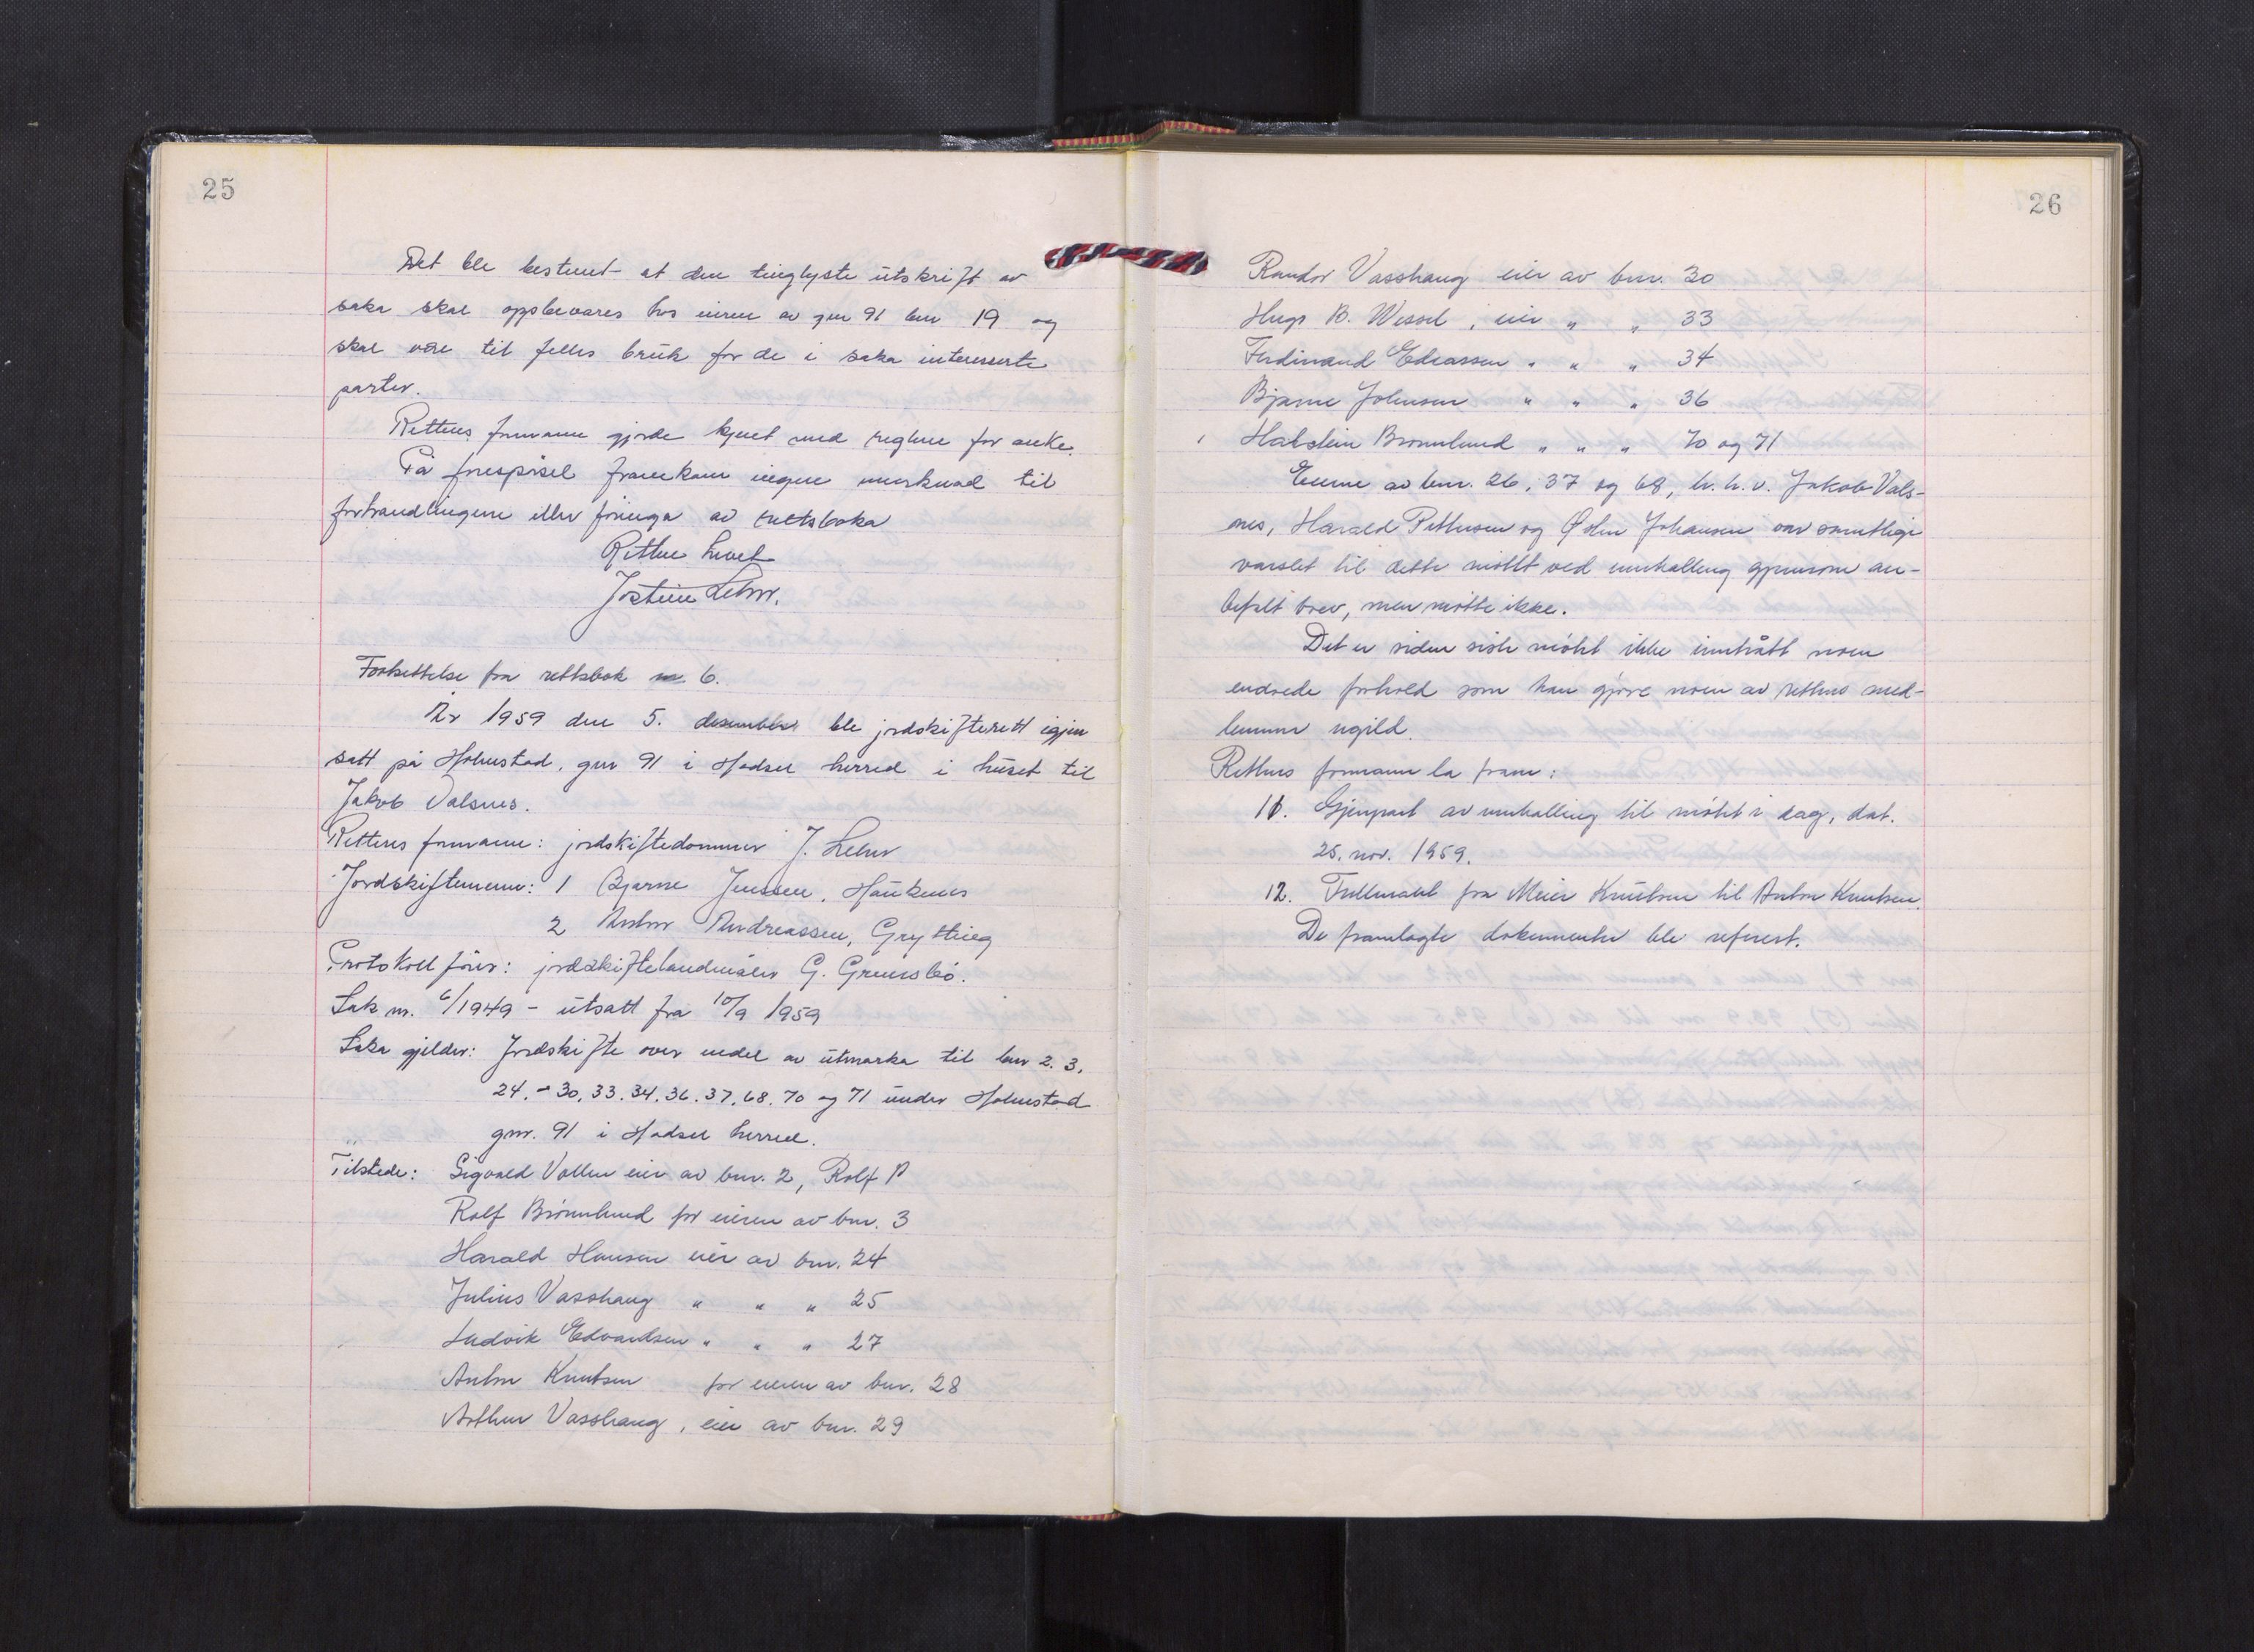 25
Det ble bestemt at den tinglyste utskrift av
saka skal oppbevares hos eieren av gnr 91 bnr 19 og
skal være til felles bruk for de i saka interesserte
parter.
Rettens formann gjorde kjent med reglene for anke.
På forespørsel framkom ingen merknad til
forhandlingene eller føringa av rettsboka
Retten hevet
Jostein Lehn.
Fortsettelse fra rettsbok nr. 6.
År 1959 den 5. desember ble jordskifterett igjen
satt på Holmstad, gnr 91 i Hadsel herred i huset til
Jakob Valsnes.
Rettens formann: jordskiftedommer J. Lehn
Jordskiftemenn: 1 Bjarne Jenssen, Haukenes
2 Anton Andreassen, Grytting
Protokollfører: jordskiftelandmåler G. Grunsbø.
Sak nr. 6/1949 - utsatt fra 10/9 1959
Saka gjelder: Jordskifte over endel av utmarka til bnr 2. 3.
24. - 30. 33. 34. 36. 37. 68. 70 og 71 under Holmstad
gnr. 91 i Hadsel herred.
Tilstede: Sigvald Vollen eier av bnr. 2, Rolf
Rolf Brønnlund for eieren av bnr. 3
Harald Hansen eier av bnr. 24
Julius Vasshaug " " " 25
Ludvik Edvardsen " " " 27
Anton Knutsen for eieren av bnr. 28
Arthur Vasshaug, eier av bnr. 29
26
Randor Vasshaug eier av bnr. 30
Hugo B. Wessel, eier " " 33
Ferdinand Edeassen " " " 34
Bjarne Johnsen " " " 36
Halstein Brønnlund " " " 70 og 71
Eierne av bnr. 26, 37 og 68, h.h.v. Jakob Vals-
nes, Harald Pettersen og Johansen var samtlige
varslet til dette møtet ved innkalling gjennom an-
befalt brev, men møtte ikke.
Det er siden siste møtet ikke inntrått noen
endrede forhold som kan gjøre noen av rettens med-
lemmer ugild.
Rettens formann la fram:
11. Gjenpart av innkalling til møtet i dag, dat.
25. nov. 1959.
12. Fullmakt fra Meier Knutsen til Anton Knutsen.
De framlagte dokumenter ble referert.